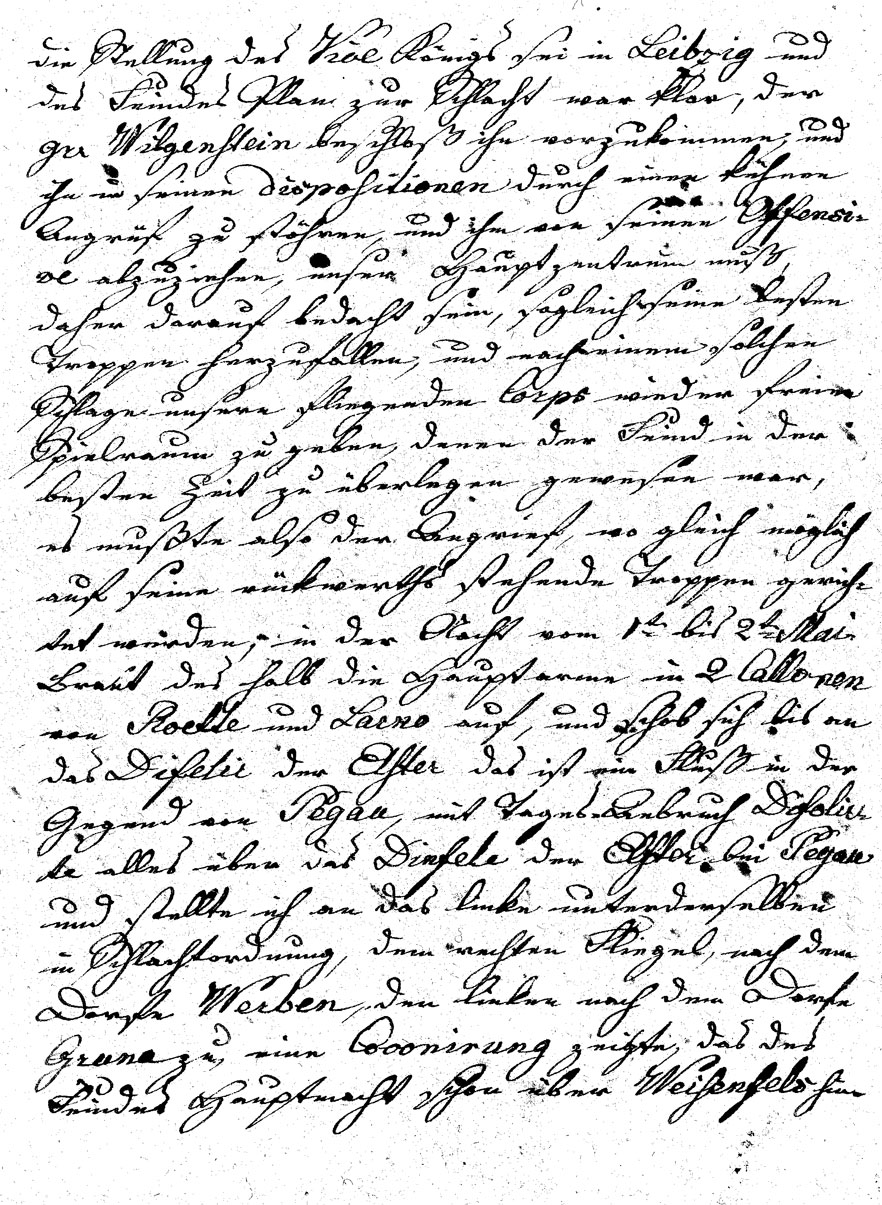 die Stellung des Vice Königs sei in Leibzig und
des Feindes Plan zur Schlacht war klar, der
Gr. Witgenstein beschloß ihn vorzukommen, und
ihn in seinen Dispositionen durch einen kühnen
Angrif zu stöhren, und ihn von seiner Offensi-
ve abzuziehen, unser Hauptzentrum muß,
daher darauf bedacht sein, sogleich seine besten
Troppen herzufallen, und nach einem solchen
Schlage unsern fliegenden Corps wieder freien
Spielraum zu geben, denen der Feind in der
besten Zeit zu überlegen gewesen war,
es mußte also der Angrief, wo gleich möglich
auf seine rückwerths stehende Troppen gerich-
tet werden, in der Nacht vom 1ten bis 2ten Mai
Brach des halb die Hauptarme in 2 Collonen
von Roette und auf, und schob sich bis an
das der Elster das ist ein Fluß in der
Gegend von Pegau, mit Tages-Anbruch Defolir-
te alles über das Diefele der Elster bei Pegau
und stellte sich an das linke unterderselben
in Schlachtordnung, dem rechten Fliegel, nach dem
Dorfe Werben, den linken nach dem Dorfe
Gruna zu, eine zeigte, das des
Feindes Hauptmacht schon über Weisenfels hin-